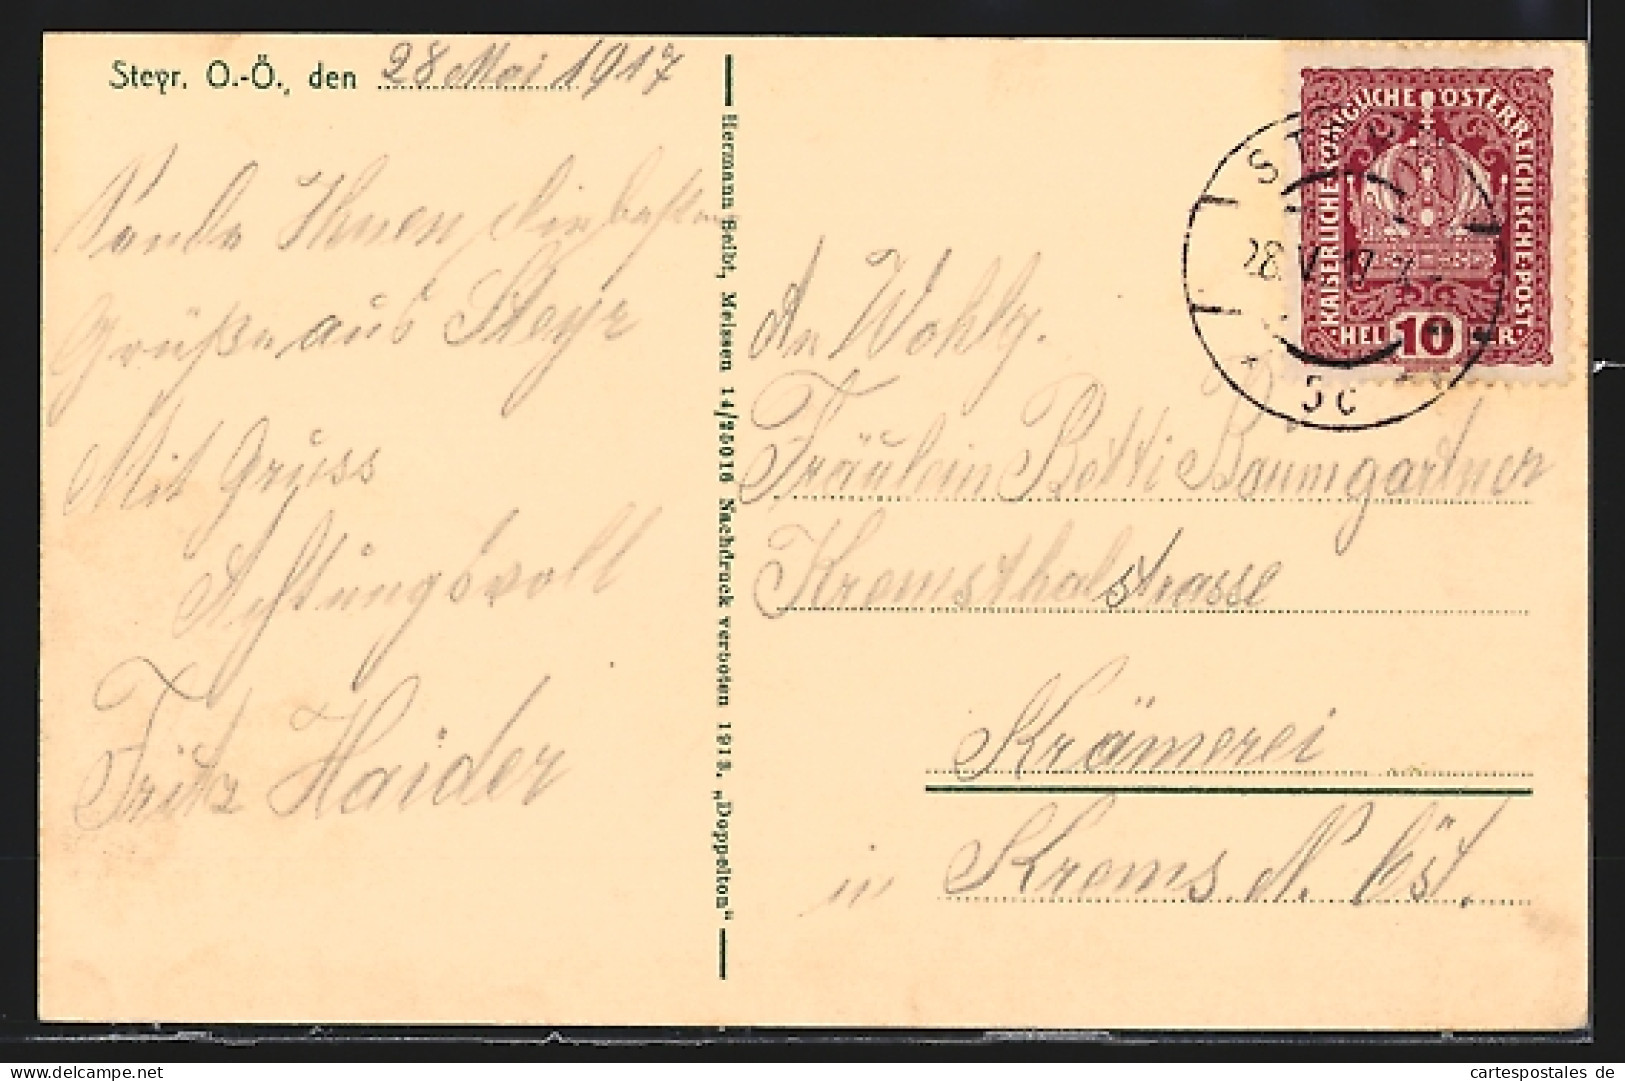 Steyr. O.-Ö., den 28 Mai 1917
Sende Ihnen die besten
Grüße aus Steyr
Mit Gruss
Achtungsvoll
Fritz Haider
Hermann Seibt, Meissen 14/25016 Nachdruck verboten 1913. „Doppelton“
KAISERLICHE KÖNIGLICHE ÖSTERREICHISCHE POST
HELLER 10
28.V.17
5c
An Wohlg.
Fräulein Betti Baumgartner
Kremsthalstrasse
Krämerei
in Krems. N. Öst.
www.cartespostales.com
cartespostales de